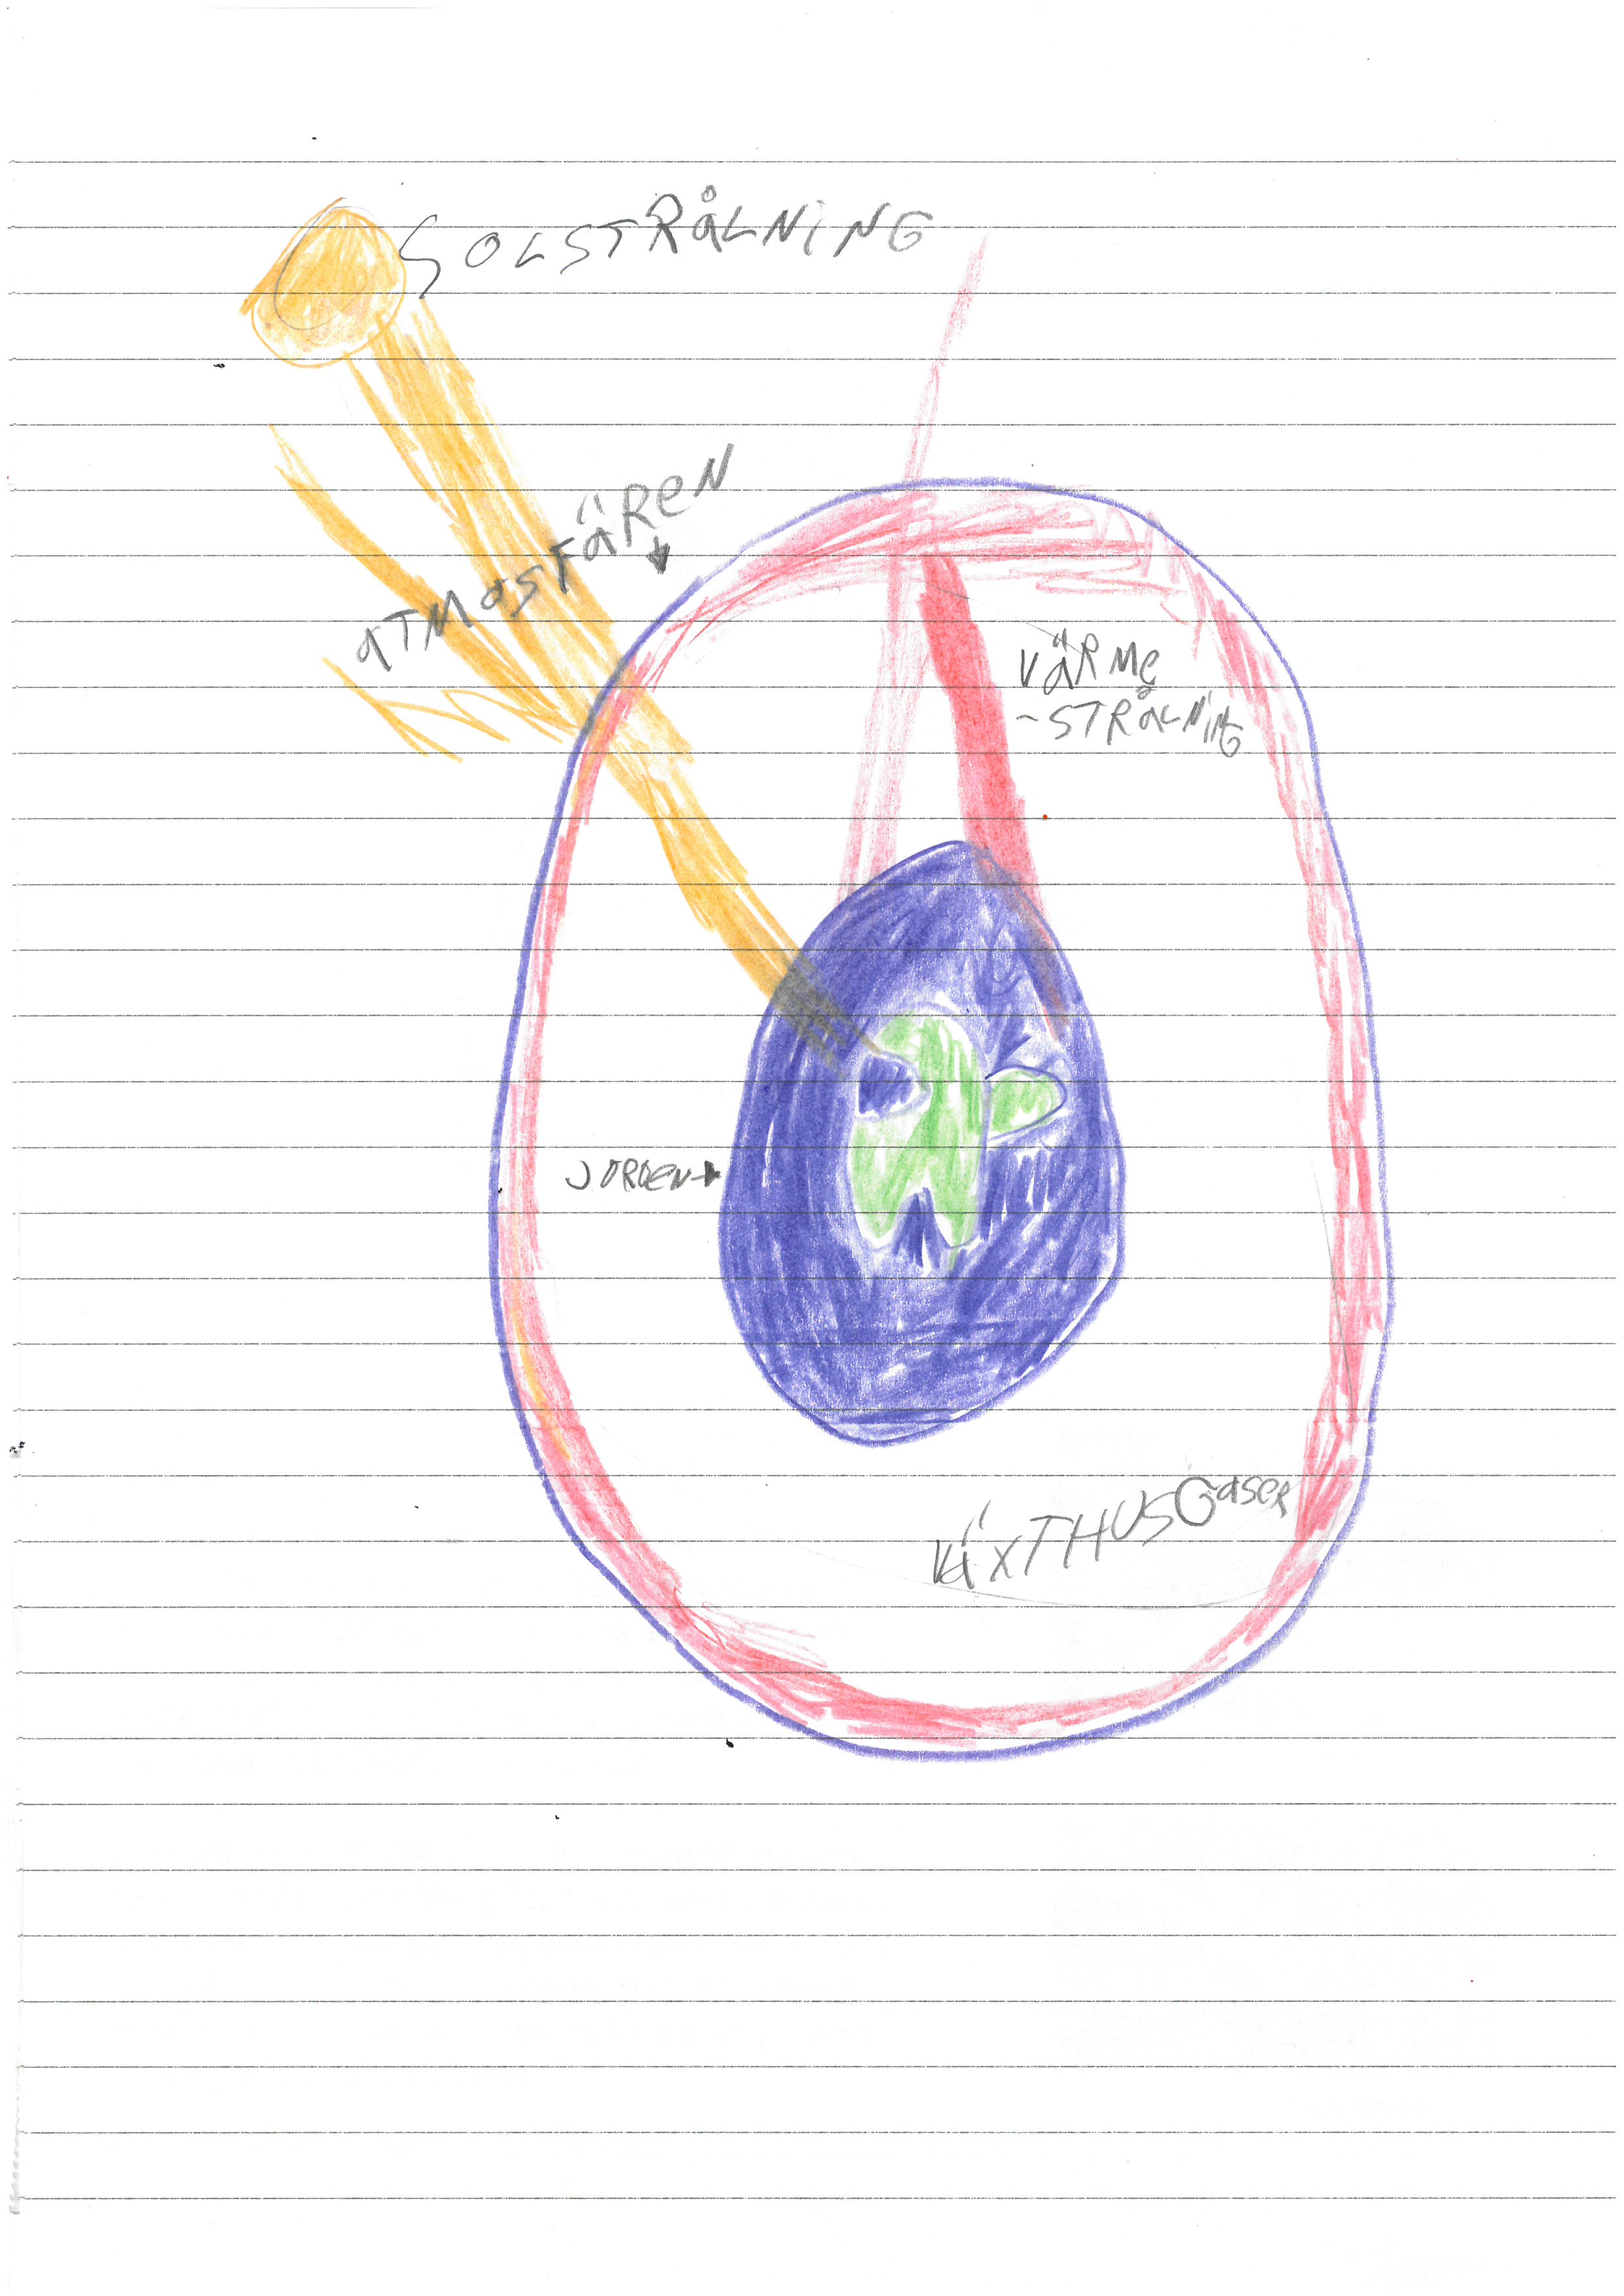 SOLSTRÅLNING
ATMOSFÄREN
VÄRME
-STRÅLNING
JORDEN
VÄXTHUSGaseR